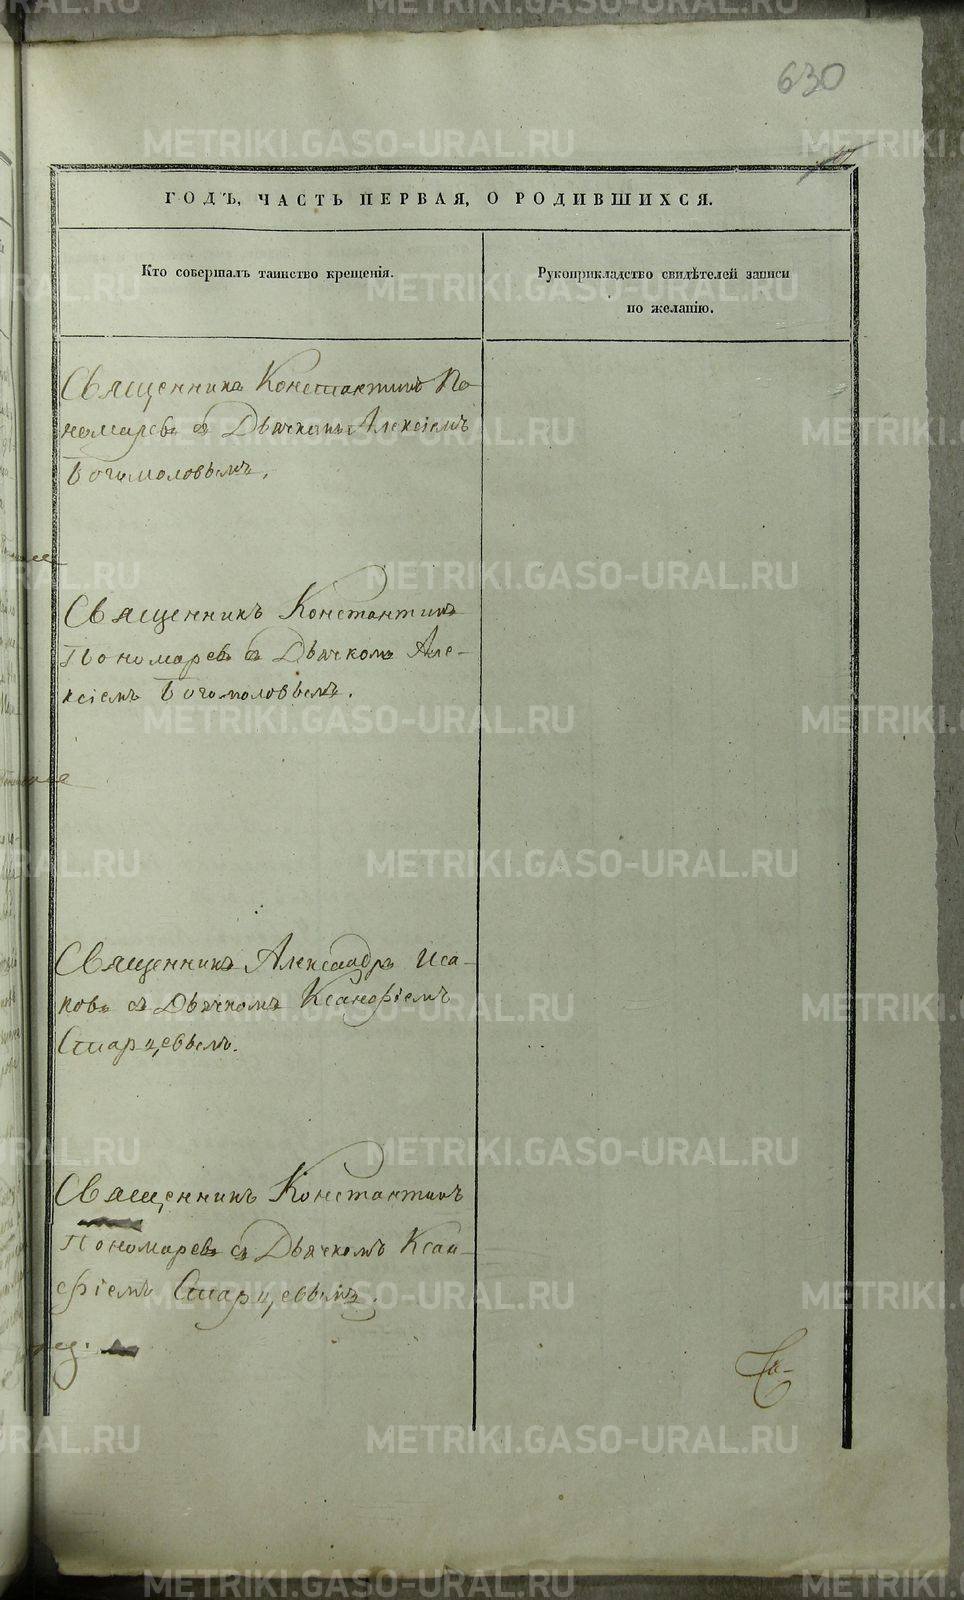 630
ГОДЪ, ЧАСТЬ ПЕРВАЯ, О РОДИВШИХСЯ.
Кто совершалъ таинство крещенія.
Рукоприкладство свидѣтелей записи
по желанію.
Священникъ Константинъ По
номаревъ съ Дьячкомъ Алексіемъ
Богомоловымъ.
Священникъ Константинъ
Пономаревъ съ Дьячкомъ Але-
ксіемъ Богомоловымъ.
Священникъ Александръ Иса-
ковъ съ Дьячкомъ Ксанфіемъ
Старцевымъ.
Священникъ Константинъ
Пономаревъ съ Дьячкомъ Ксан-
фіемъ Старцевымъ.
METRIKI.GASO-URAL.RU